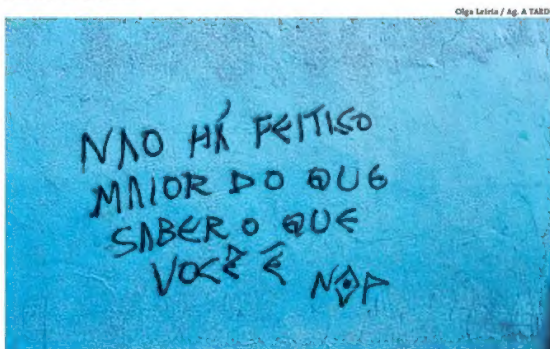 Olga Leiria / Ag. A TARD
NAO HÁ FEITISO
MAIOR DO QUE
SABER O QUE
VOCÊ É NOP